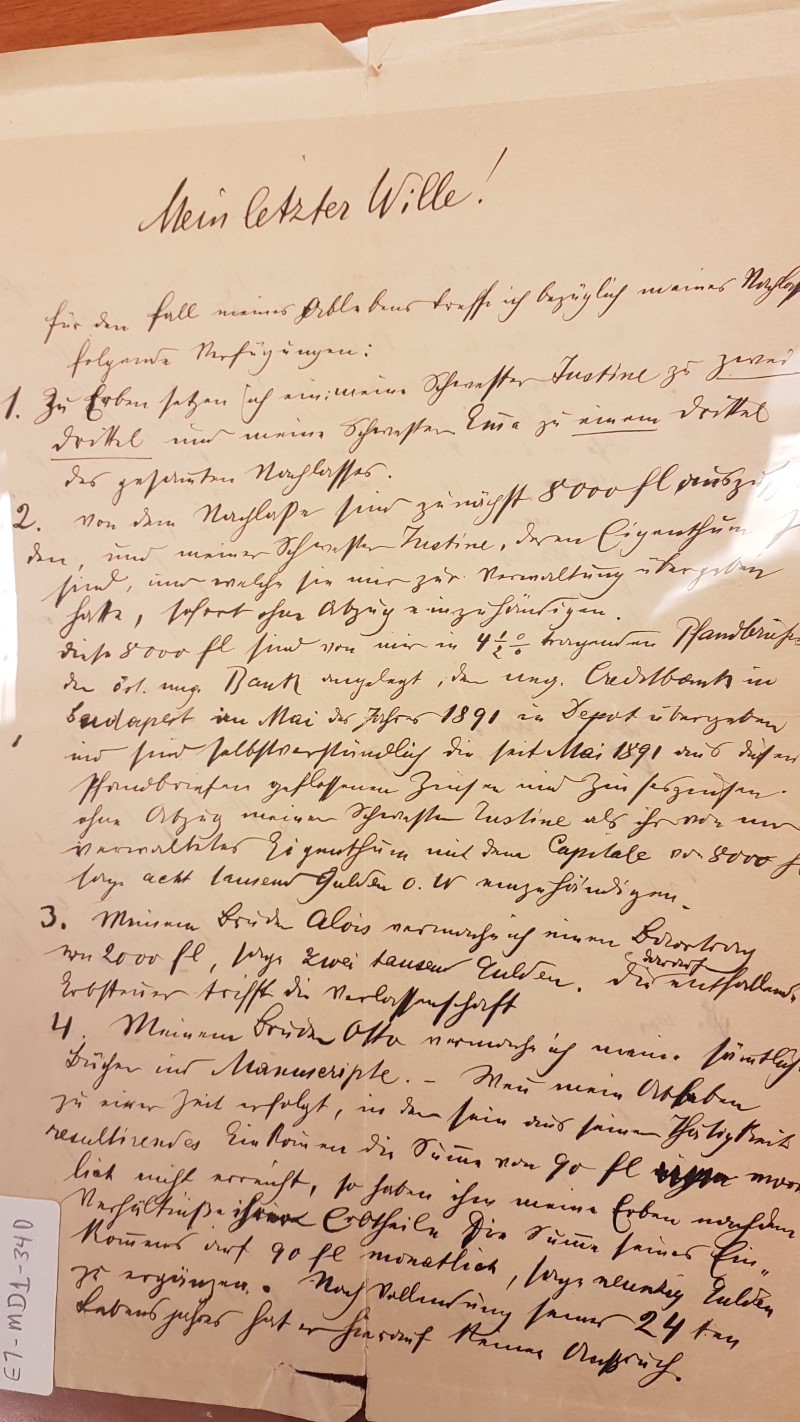 Mein letzter Wille!
für den Fall meines Ablebens treffe ich bezüglich meines Nachlaß
folgende Verfügungen:
1. Zu Erben setzen ich ein: meine Schwester Justine zu zwei
drittel und meine Schwester Em̄a zu einem drittel
des gesamten Nachlasses.
2. von dem Nachlaße sind zunächst 8000 fl auszu
den, und meiner Schwester Justine, deren Eigenthum
sind, und welche sie mir zur Verwaltung übergeben
hatte, sofort ohne Abzug einzuhändigen.
diese 8000 fl sind von mir in 4 1/2 % tragenden Pfandbriefen
der öst. ung. Bank angelegt, der ung. Creditbank in
Budapest im Mai des Jahres 1891 in Depot übergeben
und sind selbstverständlich die seit Mai 1891 aus diesen
Pfandbriefen geflossenen Zinsen und Zinseszinsen
ohne Abzug meiner Schwester Justine als ihr von mir
verwaltetes Eigenthum mit dem Capitale von 8000 fl
sage acht tausend Gulden ö. W einzuhändigen.
3. Meinem Bruder Alois vermache ich einen Baarbetrag
von 2000 fl, sage zwei tausend Gulden. Die darauf entfallende
Erbsteuer trifft die Verlassenschaft
4. Meinem Bruder Otto vermache ich meine sämtlich
Bücher und Manuscripte. – Wen̄ mein Ableben
zu einer Zeit erfolgt, in der sein aus seiner Thätigkeit
resultirendes Einkom̄en die Sum̄e von 90 fl monat
lich nicht erreicht, so haben ihm meine Erben nach dem
Verhältniße ihrer Erbtheile die Sum̄e seines Ein„
kom̄ens auf 90 fl monatlich, sage neunzig Gulden
zu ergänzen. Nach Vollendung seines 24 ten
Lebensjahres hat er hierauf keinen Anspruch.
E7-MD1-340